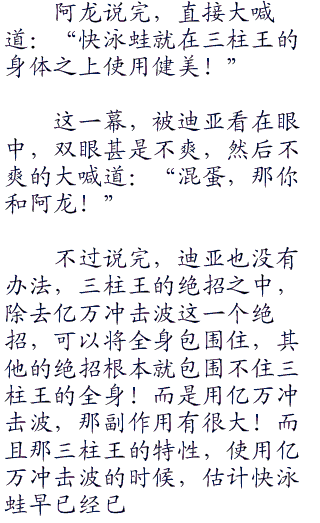 阿龙说完，直接大喊
道：“快泳蛙就在三柱王的
身体之上使用健美！”
这一幕，被迪亚看在眼
中，双眼甚是不爽，然后不
爽的大喊道：“混蛋，那你
和阿龙！”
不过说完，迪亚也没有
办法，三柱王的绝招之中，
除去亿万冲击波这一个绝
招，可以将全身包围住，其
他的绝招根本就包围不住三
柱王的全身！而是用亿万冲
击波，那副作用有很大！而
且那三柱王的特性，使用亿
万冲击波的时候，估计快泳
蛙早已经已